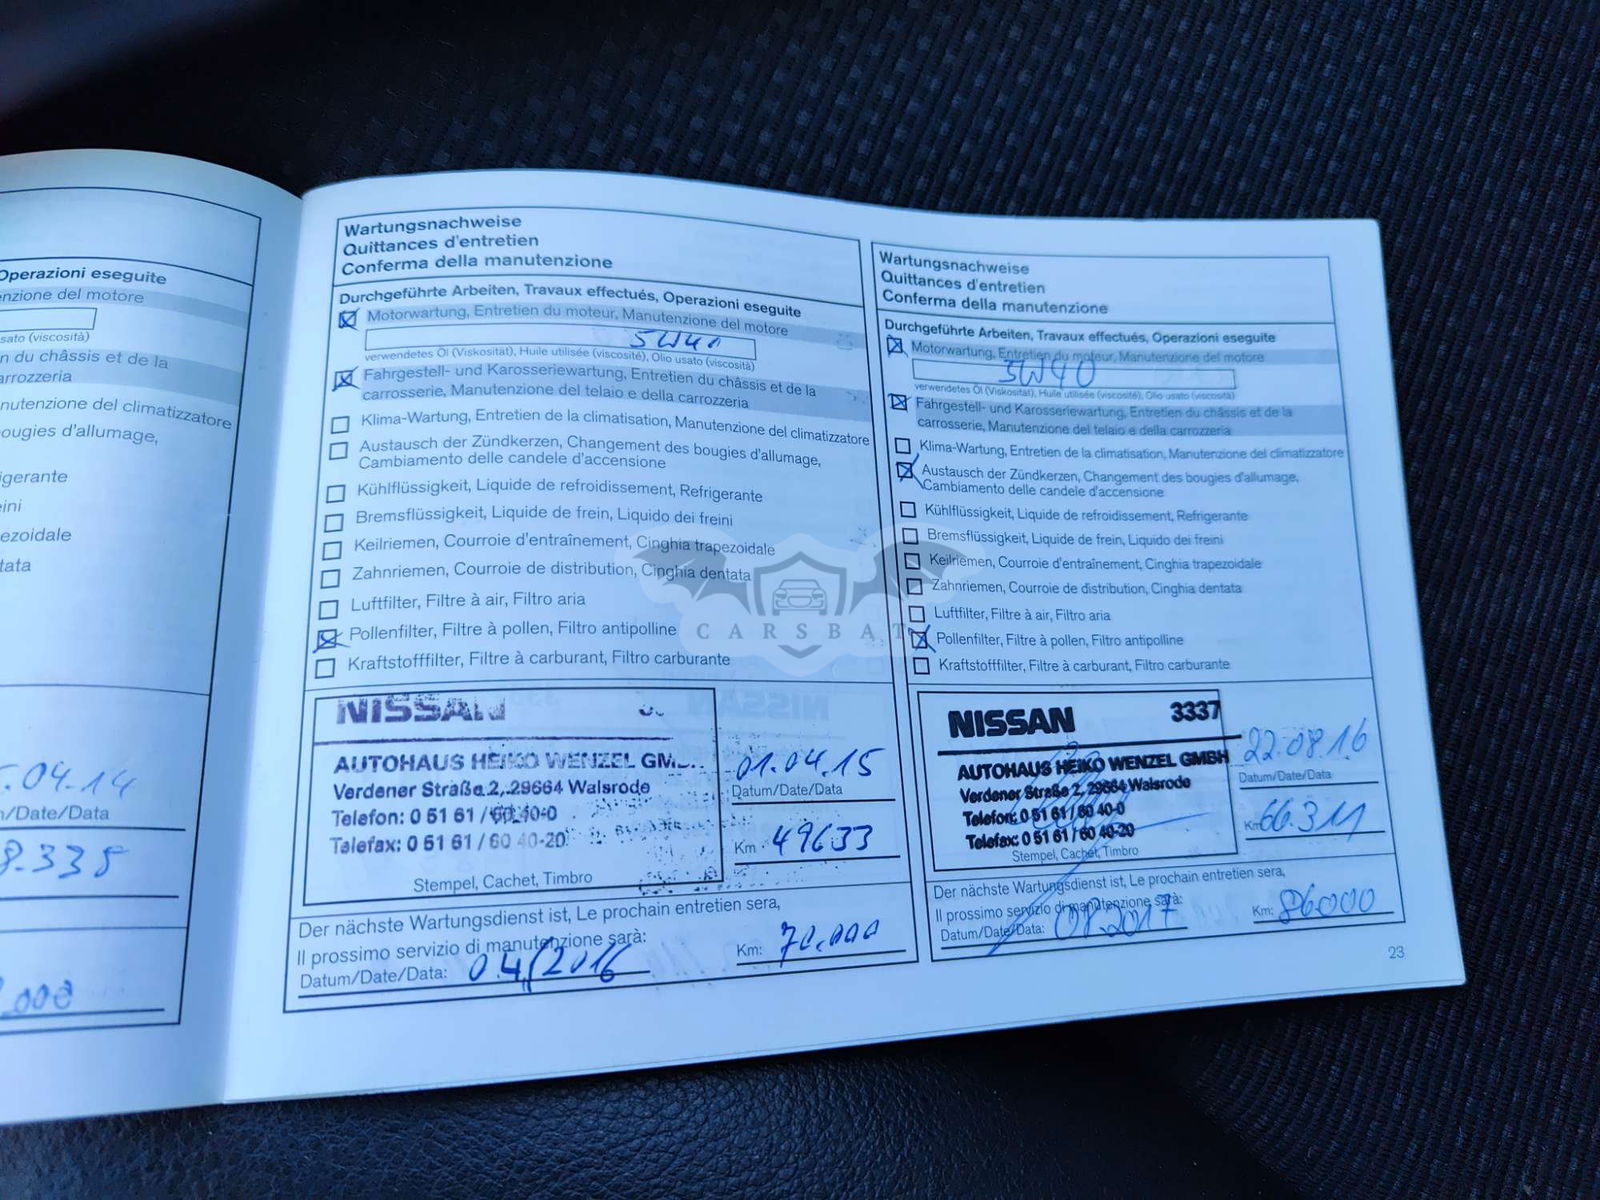 Operazioni eseguite
nzione del motore
sato (viscosità)
n du châssis et de la
arrozzeria
nutenzione del climatizzatore
bougies d'allumage,
igerante
eini
ezoidale
tata
.04.14
/Date/Data
8.335
.000
Wartungsnachweise
Quittances d'entretien
Conferma della manutenzione
Durchgeführte Arbeiten, Travaux effectués, Operazioni eseguite
Motorwartung, Entretien du moteur, Manutenzione del motore
5W40
verwendetes Öl (Viskosität), Huile utilisée (viscosité), Olio usato (viscosità)
Fahrgestell- und Karosseriewartung, Entretien du châssis et de la
carrosserie, Manutenzione del telaio e della carrozzeria
Klima-Wartung, Entretien de la climatisation, Manutenzione del climatizzatore
Austausch der Zündkerzen, Changement des bougies d'allumage,
Cambiamento delle candele d'accensione
Kühlflüssigkeit, Liquide de refroidissement, Refrigerante
Bremsflüssigkeit, Liquide de frein, Liquido dei freini
Keilriemen, Courroie d'entraînement, Cinghia trapezoidale
Zahnriemen, Courroie de distribution, Cinghia dentata
Luftfilter, Filtre à air, Filtro aria
Pollenfilter, Filtre à pollen, Filtro antipolline
Kraftstofffilter, Filtre à carburant, Filtro carburante
NISSAN
AUTOHAUS HEIKO WENZEL GM
Verdener Straße 2, 29664 Walsrode
Telefon: 0 51 61 / 60 40-0
Telefax: 0 51 61 / 60 40-20
Stempel, Cachet, Timbro
01.04.15
Datum/Date/Data
Km: 49633
Der nächste Wartungsdienst ist, Le prochain entretien sera,
Il prossimo servizio di manutenzione sarà:
Datum/Date/Data: 04/2016
Km: 70.000
Wartungsnachweise
Quittances d'entretien
Conferma della manutenzione
Durchgeführte Arbeiten, Travaux effectués, Operazioni eseguite
Motorwartung, Entretien du moteur, Manutenzione del motore
5W40
verwendetes Öl (Viskosität), Huile utilisée (viscosité), Olio usato (viscosità)
Fahrgestell- und Karosseriewartung, Entretien du châssis et de la
carrosserie, Manutenzione del telaio e della carrozzeria
Klima-Wartung, Entretien de la climatisation, Manutenzione del climatizzatore
Austausch der Zündkerzen, Changement des bougies d'allumage,
Cambiamento delle candele d'accensione
Kühlflüssigkeit, Liquide de refroidissement, Refrigerante
Bremsflüssigkeit, Liquide de frein, Liquido dei freini
Keilriemen, Courroie d'entraînement, Cinghia trapezoidale
Zahnriemen, Courroie de distribution, Cinghia dentata
Luftfilter, Filtre à air, Filtro aria
Pollenfilter, Filtre à pollen, Filtro antipolline
Kraftstofffilter, Filtre à carburant, Filtro carburante
NISSAN 3337
AUTOHAUS HEIKO WENZEL GMBH
Verdener Straße 2, 29664 Walsrode
Telefon: 0 51 61 / 60 40-0
Telefax: 0 51 61 / 60 40-20
Stempel, Cachet, Timbro
22.08.16
Datum/Date/Data
Km: 66.311
Der nächste Wartungsdienst ist, Le prochain entretien sera,
Il prossimo servizio di manutenzione sarà:
Datum/Date/Data: 08.2017
Km: 86000
23
CARSBAT